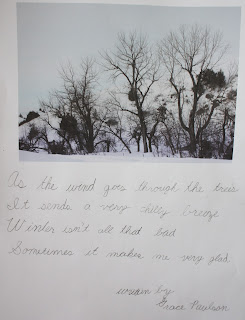 As the wind goes through the trees
It sends a very chilly breeze
Winter isn't all that bad
Sometimes it makes me very glad
written by
Grace Paulson